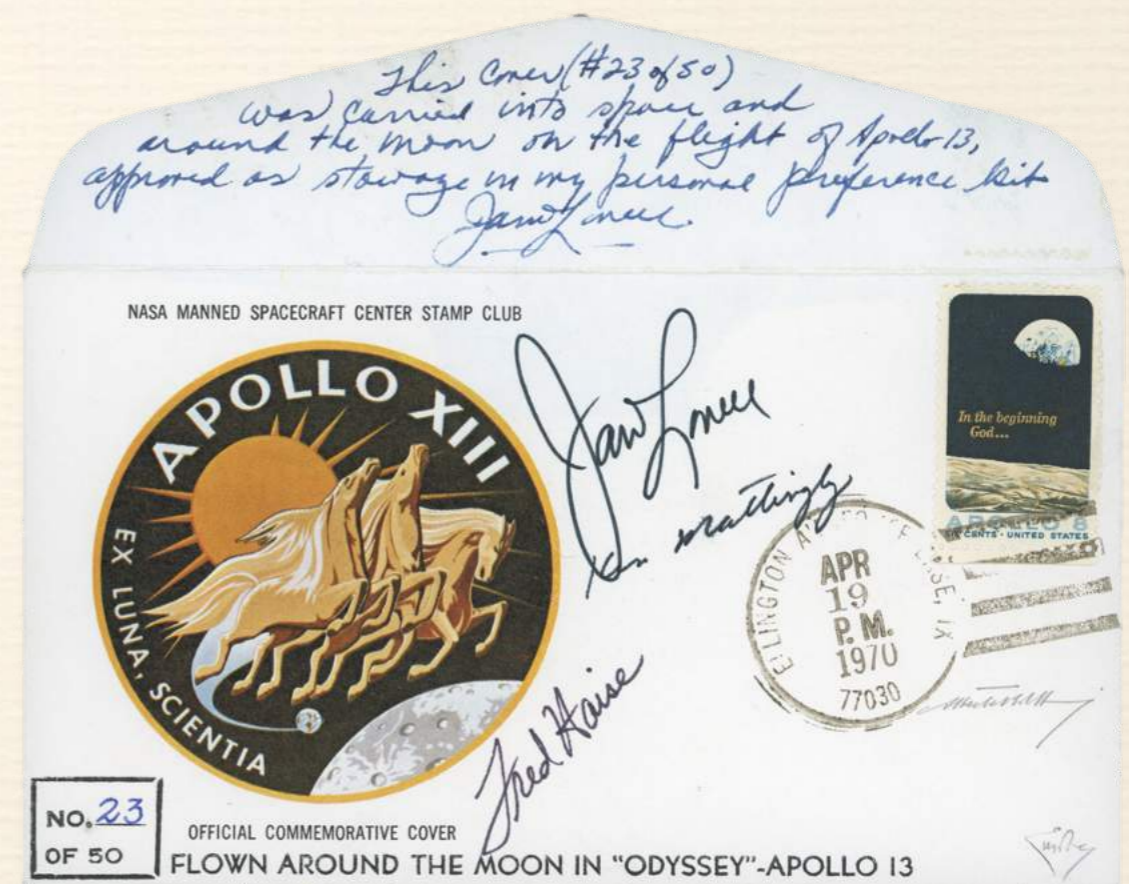 This Cover (#23 of 50)
was carried into space and
around the moon on the flight of Apollo 13,
approved as stowage in my personal preference kit
James Lovell
NASA MANNED SPACECRAFT CENTER STAMP CLUB
APOLLO XIII
EX LUNA, SCIENTIA
James Lovell
Ken Mattingly
Fred Haise
In the beginning
God...
APOLLO 8
SIX CENTS · UNITED STATES
ELLINGTON AIR FORCE BASE, TX
APR
19
P.M.
1970
77030
NO. 23
OF 50
OFFICIAL COMMEMORATIVE COVER
FLOWN AROUND THE MOON IN "ODYSSEY"-APOLLO 13